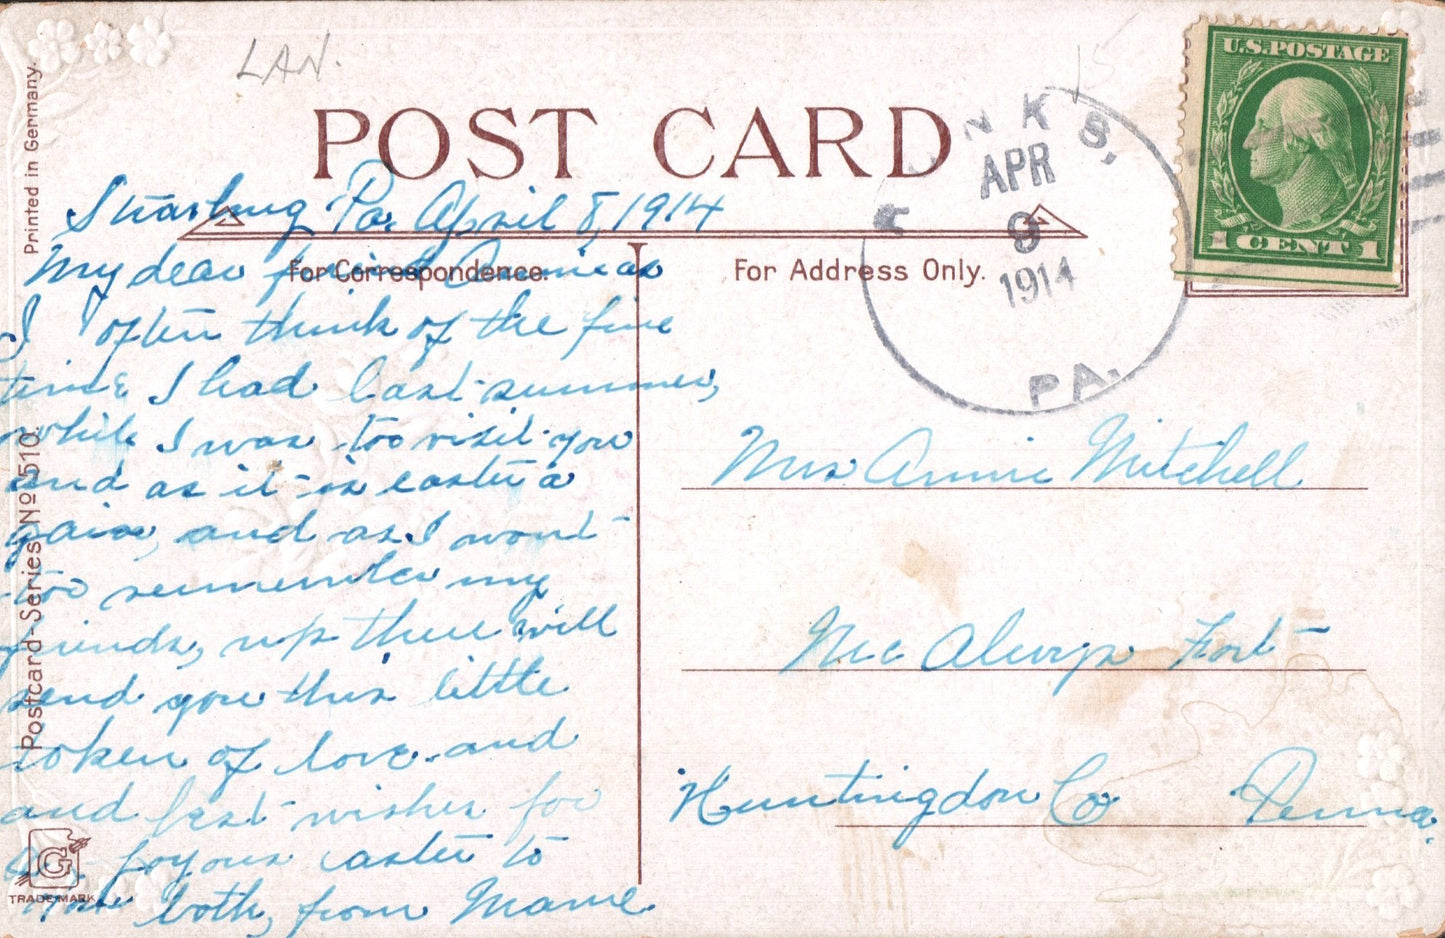 LAN.
15
POST CARD
U.S. POSTAGE
1 CENT 1
NKS,
APR
9
1914
PA.
Printed in Germany.
Postcard-Series No 510.
G
TRADE MARK
For Correspondence.
For Address Only.
Pa. April 8, 1914
My dear friend
I often think of the fine
time I had last summer,
while I was too visit you
and as it is easter a
gain, and as I wont
too remember my
friends, up there will
send you this little
token of love and
and best wishes for
joyous easter to
you both, from Mame
Mrs Annie Mitchell
Mc Alevys Fort
Huntingdon Co Penna.